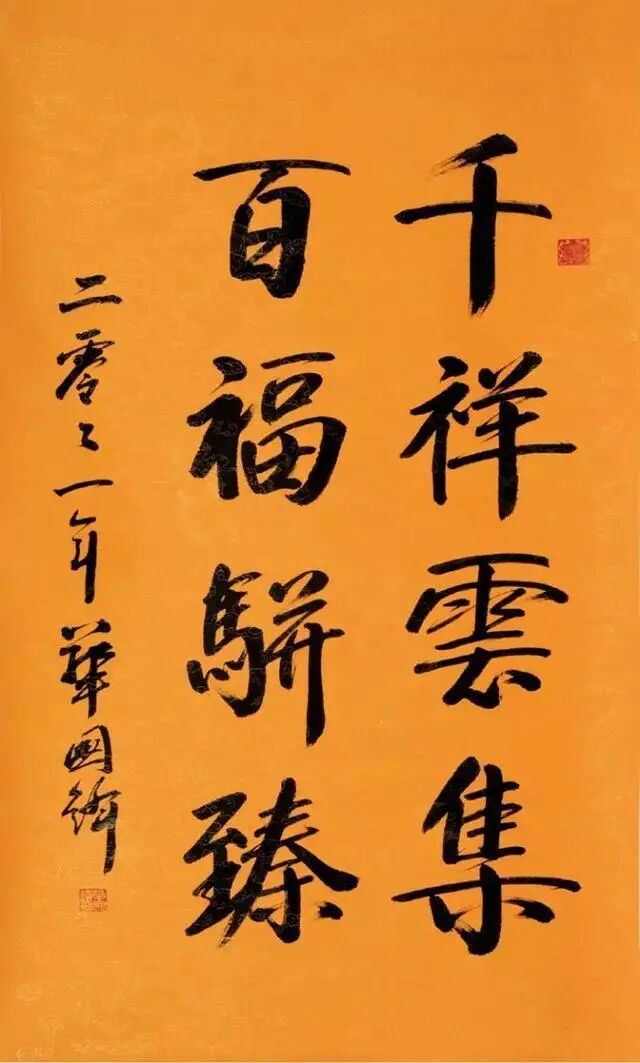 千祥雲集
百福駢臻
二零〻一年 華國鋒